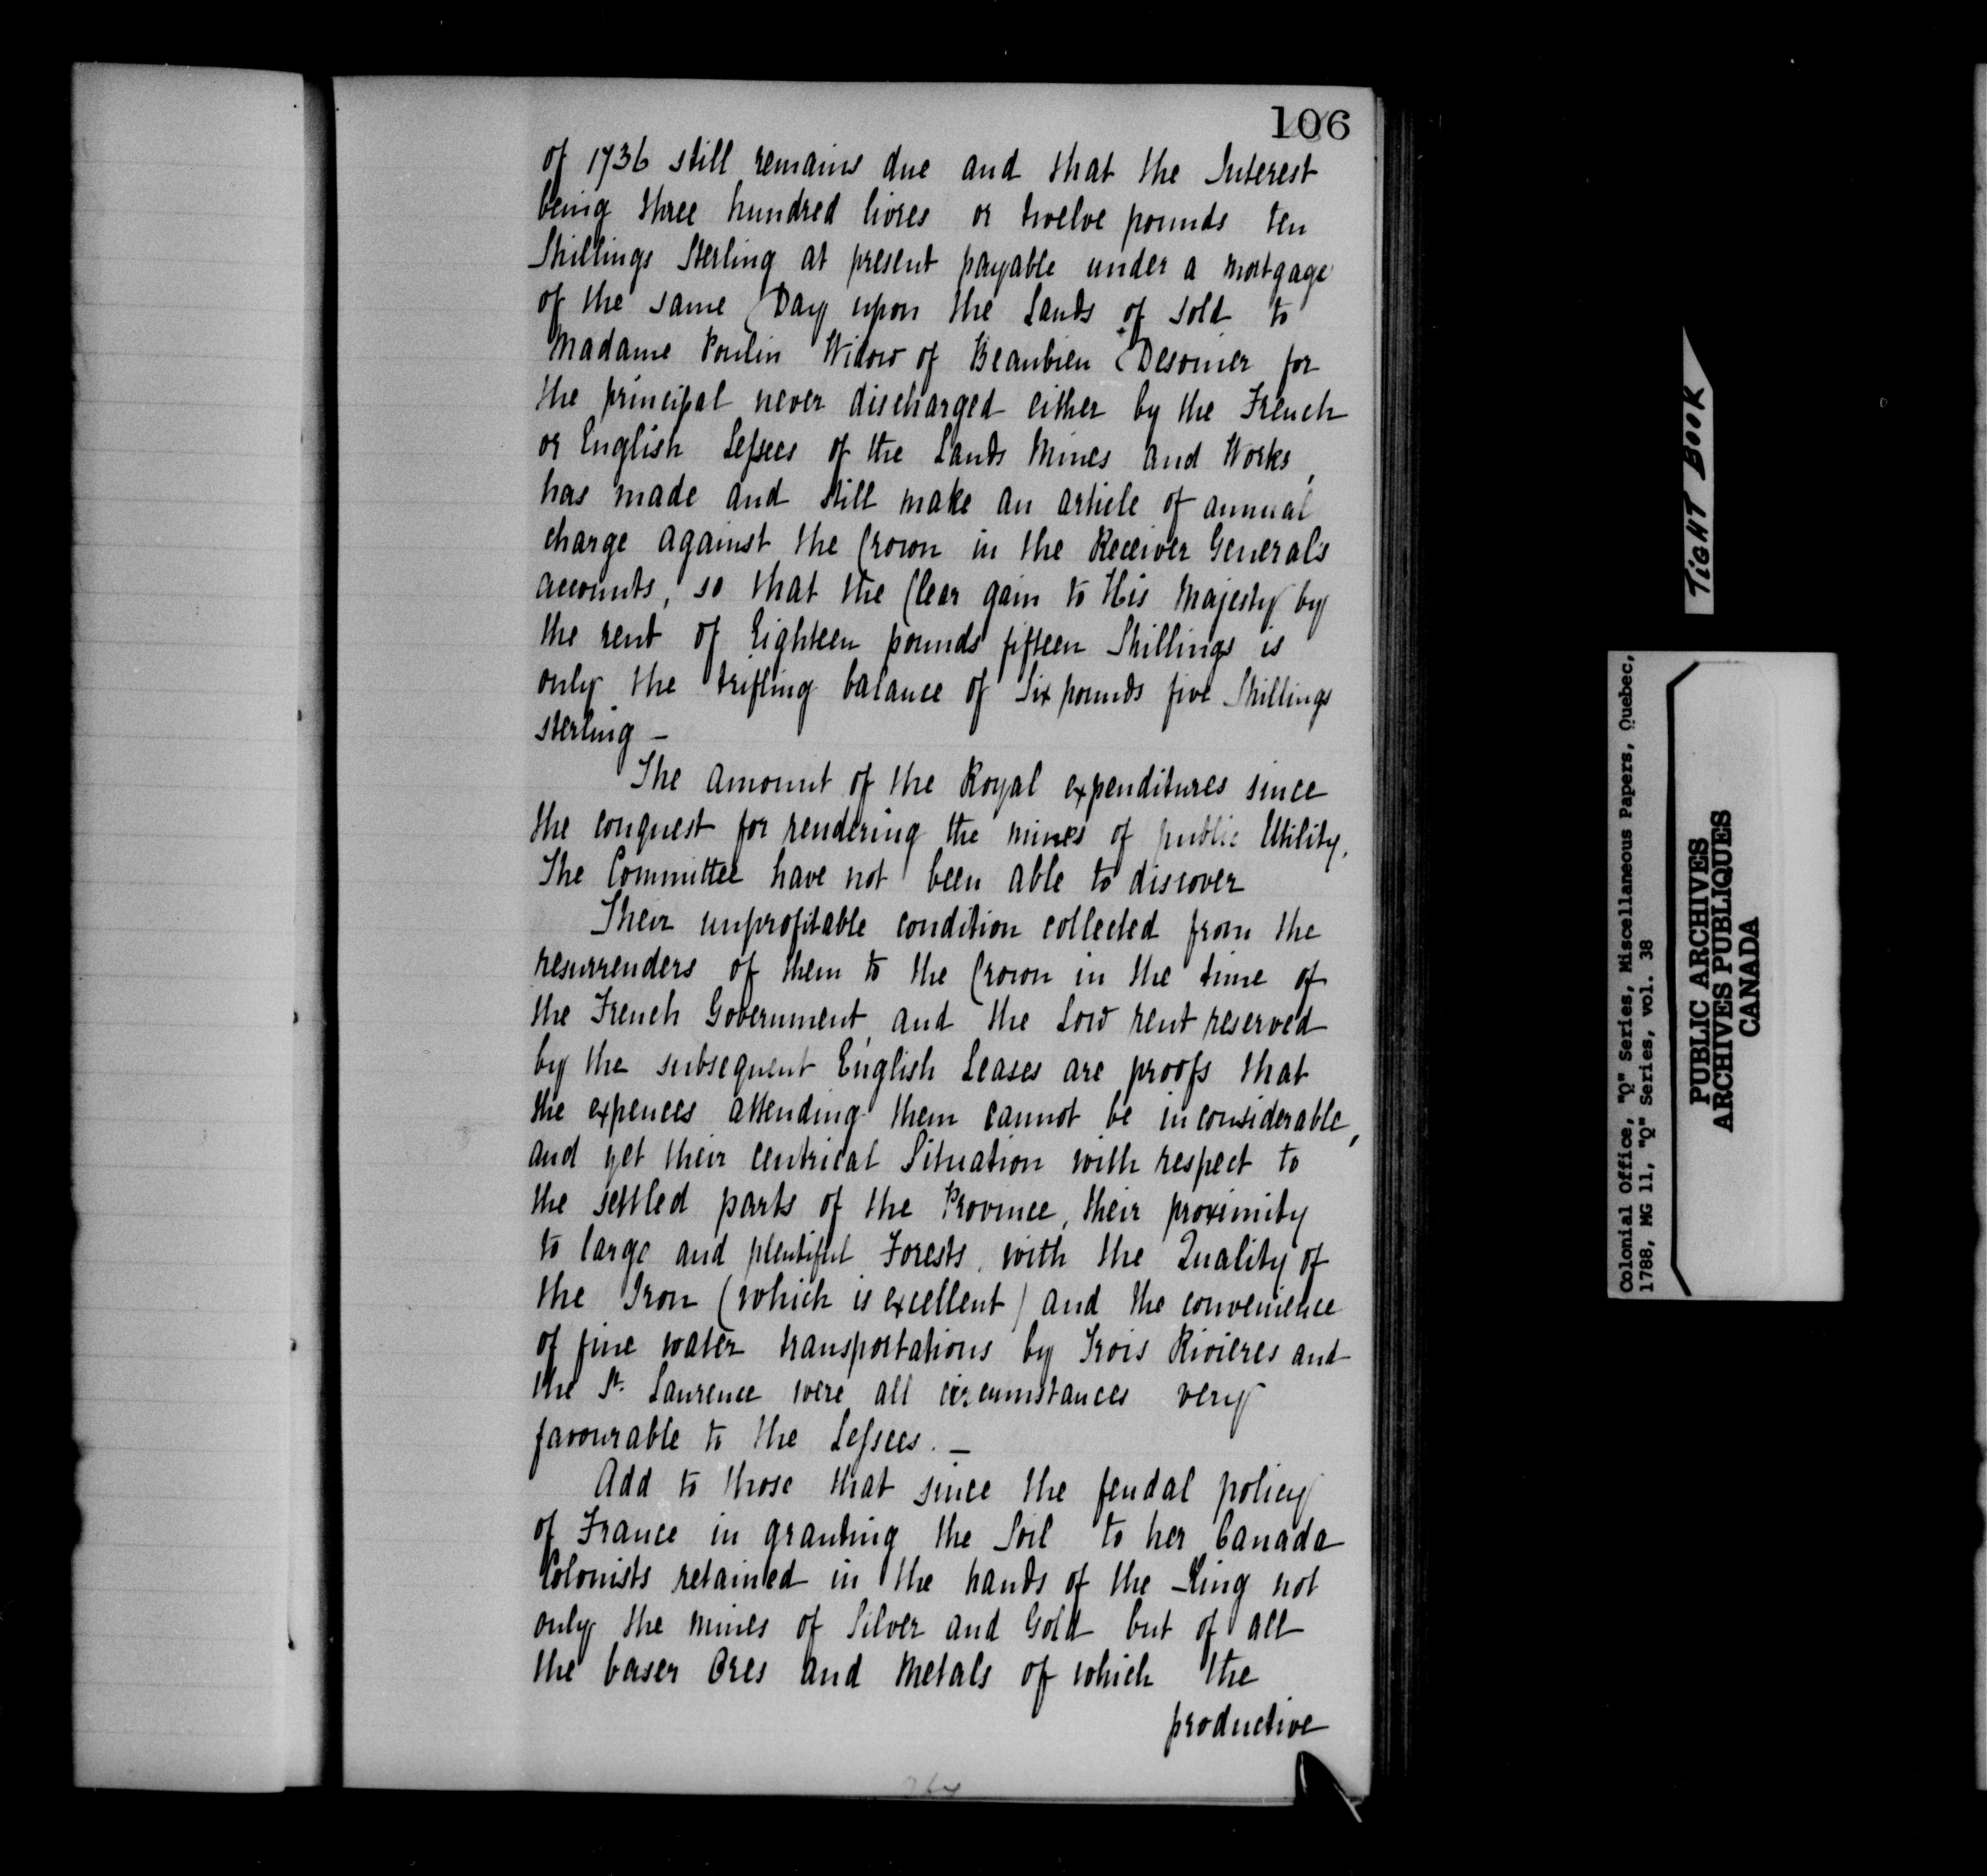 106
of 1736 still remains due and that the Interest
being three hundred livres or twelve pounds ten
Shillings Sterling at present payable under a mortgage
of the same Day upon the Lands of sold to
Madame Poulin Widow of Beaubien Desomier for
the principal never discharged either by the French
or English Lessees of the Lands Mines and Works,
has made and still make an article of annual
charge against the Crown in the Receiver General's
accounts, so that the Clear gain to His Majesty by
the rent of Eighteen pounds fifteen Shillings is
only the trifling balance of Six pounds five Shillings
sterling —
The amount of the Royal expenditures since
the conquest for rendering the mines of public Utility,
The Committee have not been able to discover
Their unprofitable condition collected from the
resurrenders of them to the Crown in the time of
the French Government, and the Low rent reserved
by the subsequent English Leases are proofs that
the expences attending them cannot be inconsiderable,
and yet their centrical Situation with respect to
the settled parts of the Province, their proximity
to large and plentiful Forests, with the Quality of
the Iron (which is excellent) and the convenience
of fine water transportations by Trois Rivieres and
the St. Laurence were all circumstances very
favourable to the Lessees. —
Add to those that since the feudal policy
of France in granting the Soil to her Canada
Colonists retained in the hands of the King not
only the mines of Silver and Gold but of all
the baser Ores and Metals of which the
productive
TIGHT BOOK
Colonial Office, "Q" Series, Miscellaneous Papers, Quebec,
1788, MG 11, "Q" Series, vol. 38
PUBLIC ARCHIVES
ARCHIVES PUBLIQUES
CANADA